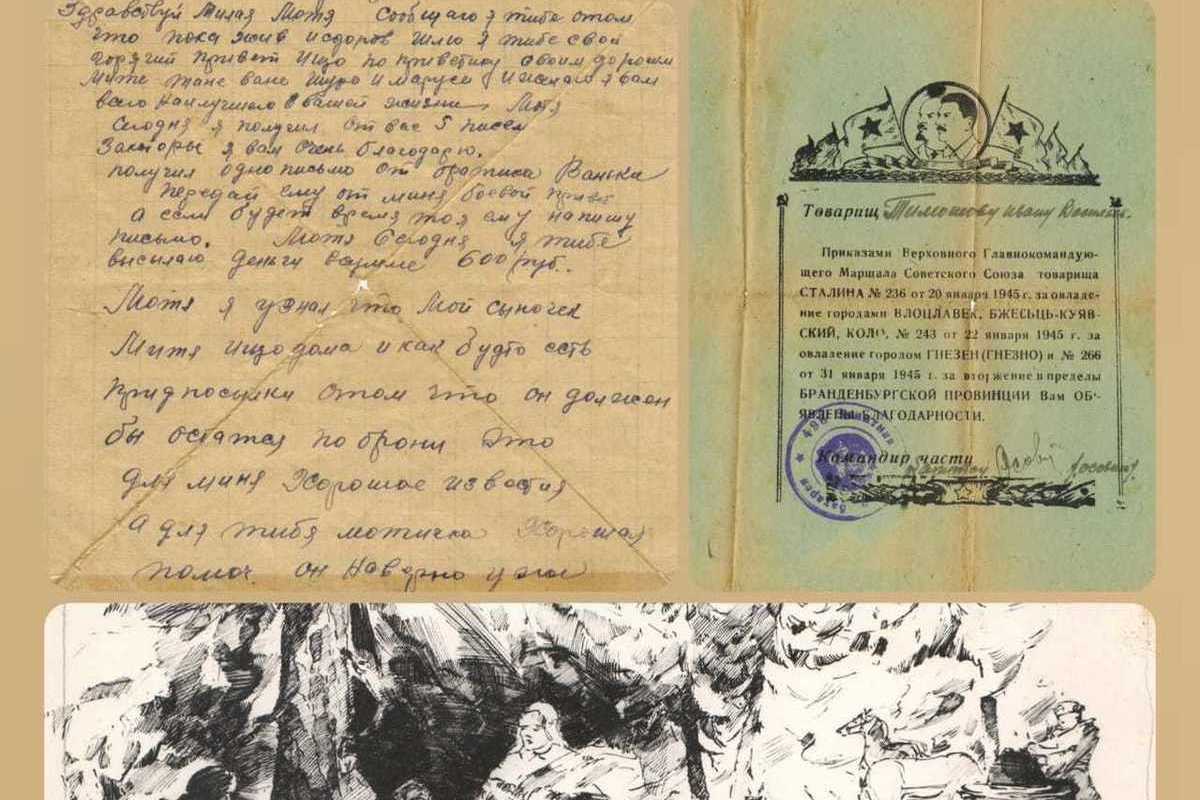 Здравствуй Милая Мотя Сообщаю я тибе отом
что пока жив издоров Шлю я тибе свой
горячий привет Ищо по приветику своим дорогим
Мите Тане Ване Шуро и Маруси и желаю я вам
всего наилучшего в вашей жизни Мотя
Сегодня я получил от вас 5 писем
За которы я вам очень благодарю.
получил одно письмо от братиса Ваньки
Передай ему от миня боевой привет
а если будет время то я ему напишу
письмо. Мотя Сегодня я тибе
высылаю деньги 600 руб.
Мотя я узнал что Мой сыночек
Митя ищо дома и как будто есть
придпосылки отом что он должон
бы остатся по брони это
для миня Хорошое известия
а для тибя мотичка Хорошая
помоч. он Наверно уже
Товарищ Тимошову Ивану
Приказами Верховного Главнокомандую-
щего Маршала Советского Союза товарища
СТАЛИНА № 236 от 20 января 1945 г. за овладе-
ние городами ВЛОЦЛАВЕК, БЖЕСЬЦЬ-КУЯВ-
СКИЙ, КОЛО, № 243 от 22 января 1945 г. за
овладение городом ГНЕЗЕН (ГНЕЗНО) и № 266
от 31 января 1945 г. за вторжение в пределы
БРАНДЕНБУРГСКОЙ ПРОВИНЦИИ Вам ОБ'-
ЯВЛЕНЫ БЛАГОДАРНОСТИ.
Командир части